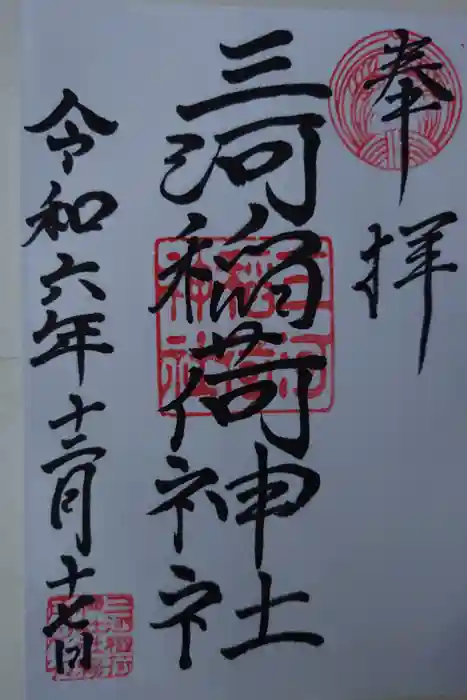 奉拝
三河稲荷神社
令和六年十二月十七日
三河
稲荷
神社